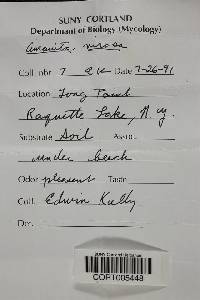 SUNY CORTLAND
Department of Biology (Mycology)
Amanita
Coll. nbr 7 Date 7-26-91
Location Long Point
Raquette Lake, N.Y.
Substrate Soil
under beech
Odor pleasant Taste
Coll. Edwin
Det.
SUNY Cortland Herbarium
CORT008448